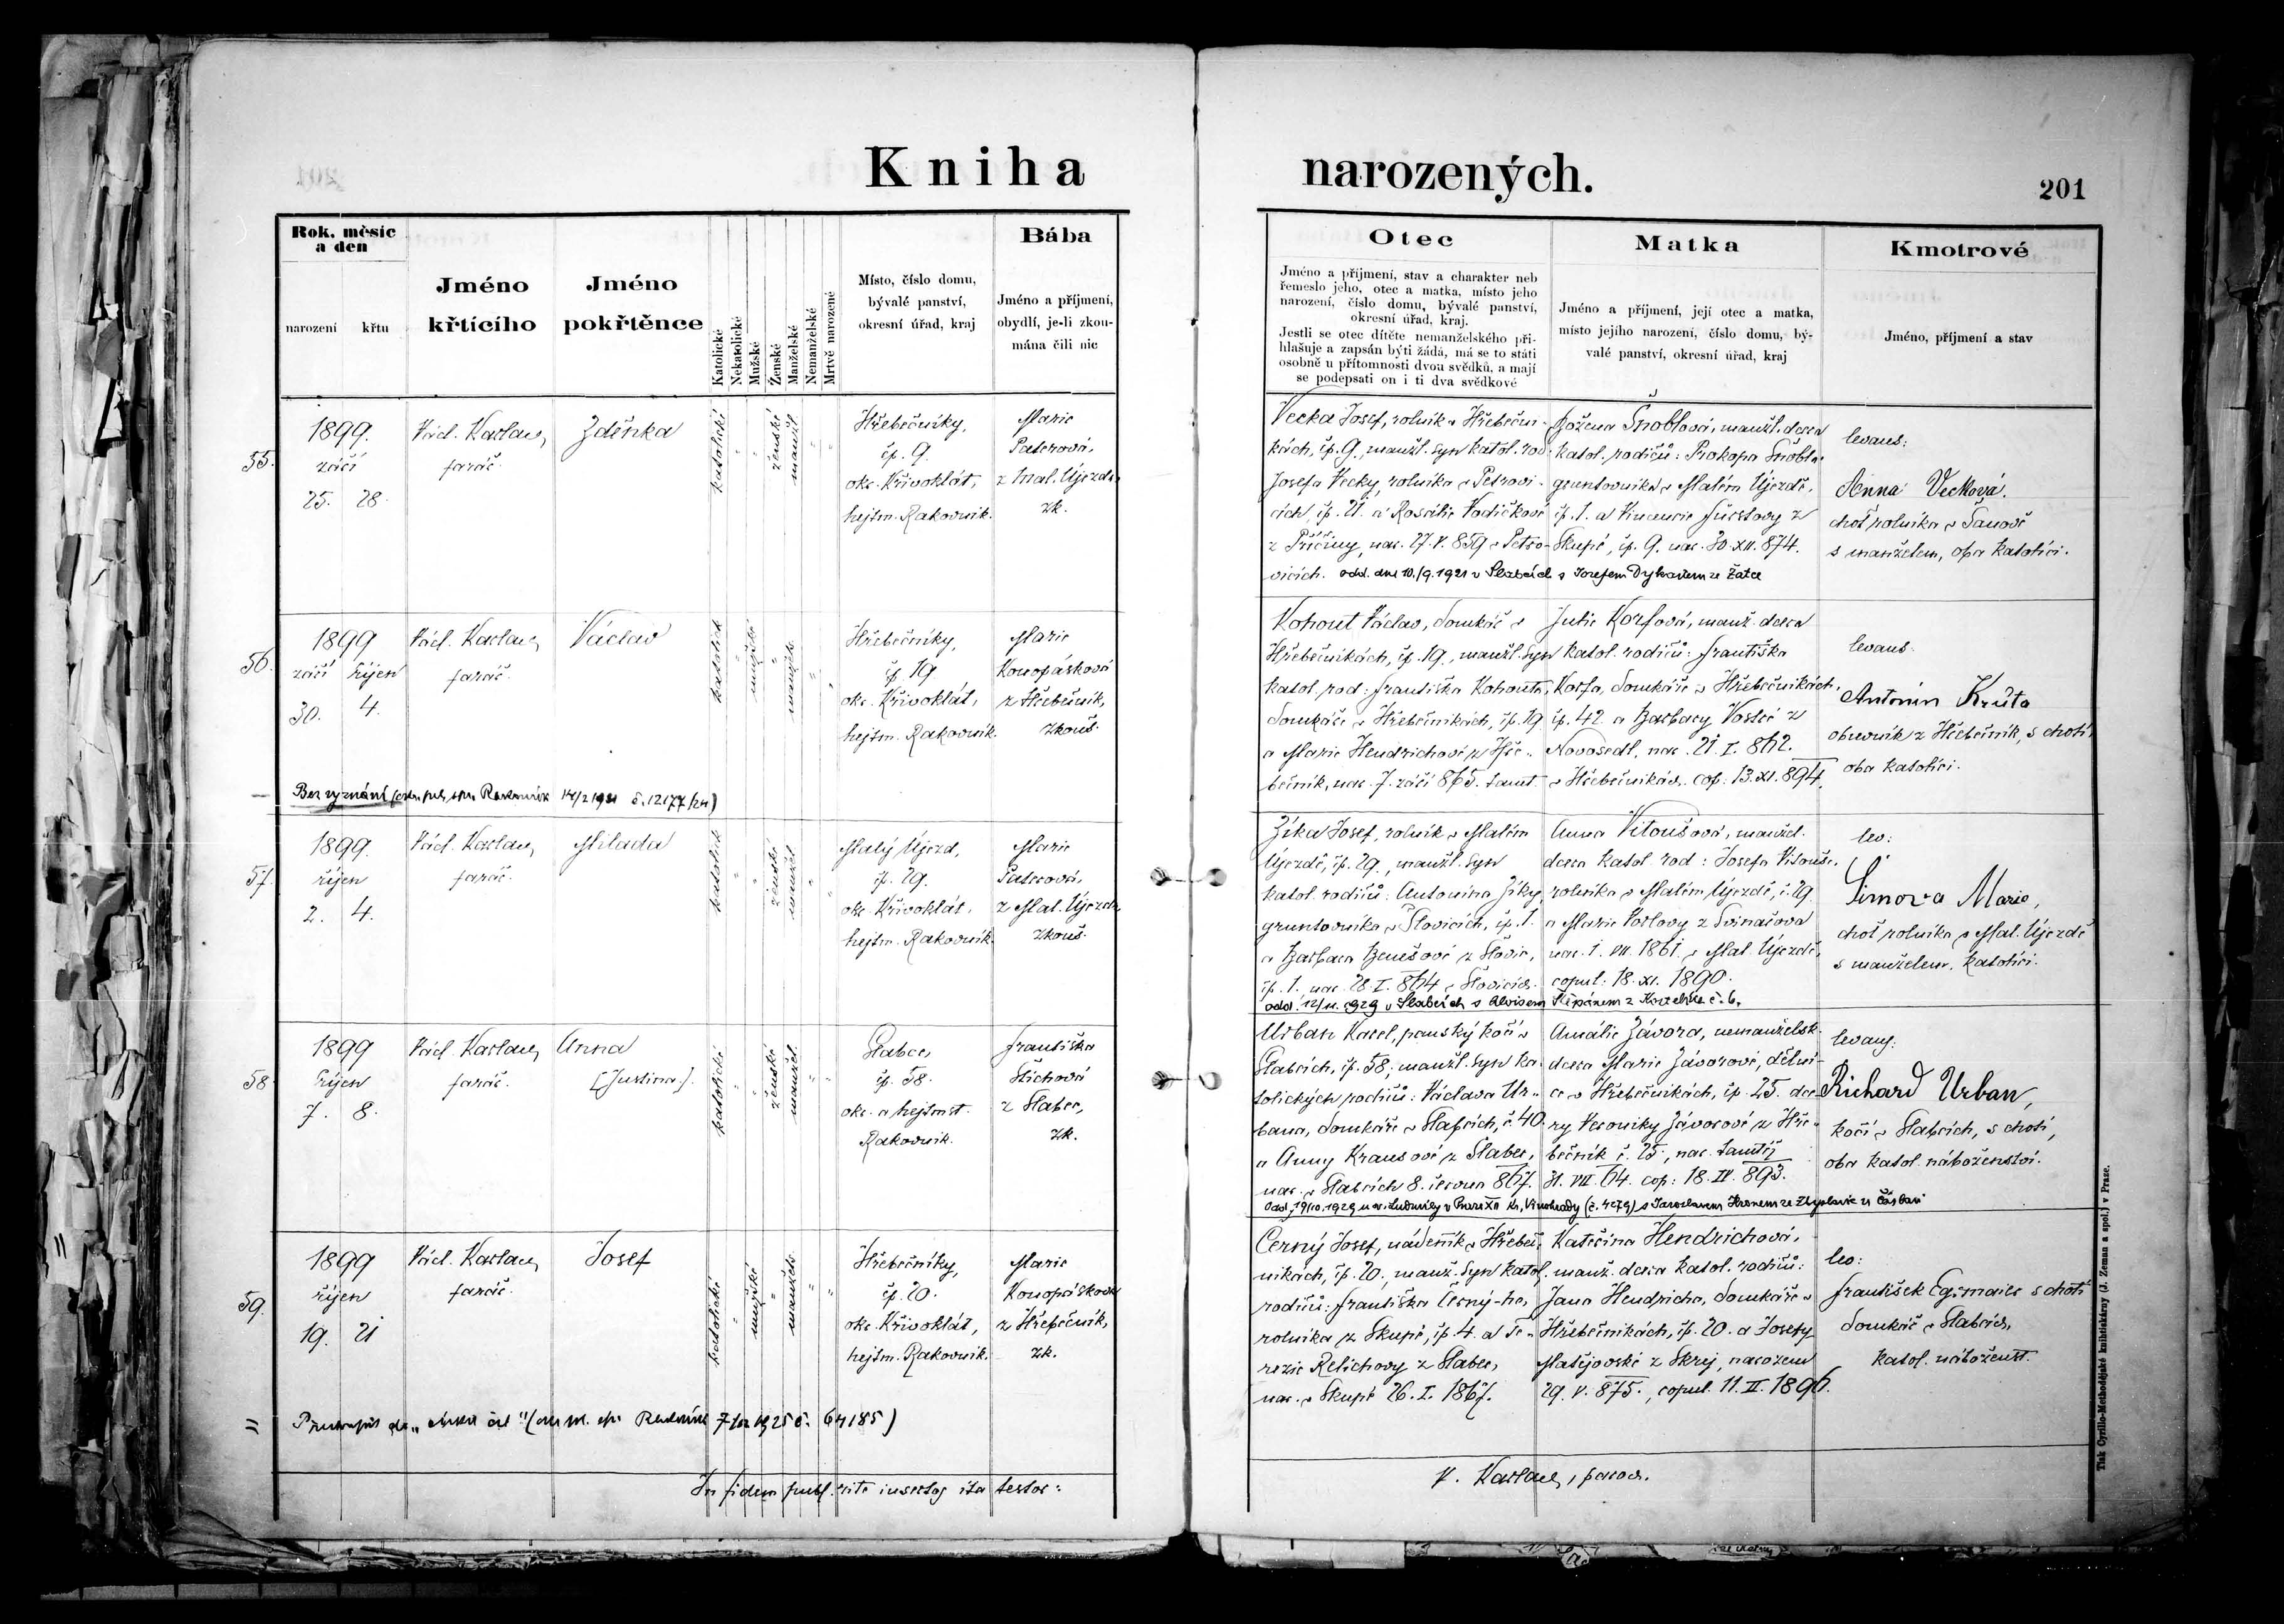 Kniha narozených.
201
Rok, měsíc a den
narození křtu
Jméno křtícího
Jméno pokřtěnce
Katolické
Nekatolické
Mužské
Ženské
Manželské
Nemanželské
Mrtvě narozené
Místo, číslo domu,
bývalé panství,
okresní úřad, kraj
Bába
Jméno a příjmení,
obydlí, je-li zkou-
mána čili nic
Otec
Jméno a příjmení, stav a charakter neb
řemeslo jeho, otec a matka, místo jeho
narození, číslo domu, bývalé panství,
okresní úřad, kraj.
Jestli se otec dítěte nemanželského při-
hlašuje a zapsán býti žádá, má se to státi
osobně u přítomnosti dvou svědků, a mají
se podepsati on i ti dva svědkové
Matka
Jméno a příjmení, její otec a matka,
místo jejího narození, číslo domu, bý-
valé panství, okresní úřad, kraj
Kmotrové
Jméno, příjmení a stav
55.
1899.
září
25. 28.
Václ.
farář.
Zděnka
katolické
ženské
manžel
Hřebečníky,
čp. 9.
okr. Křivoklát,
hejtm. Rakovník.
Marie
Paterová,
z Mal. Újezda
zk.
Vecka Josef, rolník v Hřebeční-
kách, čp. 9., manžl. syn katol. rod.
Josefa Vecky, rolníka v Petrovi-
cích, čp. 21. a Rosalie Vodičkové
z Příčiny, nar. 27. V. 859 v Petro-
vicích. odd. dne 10./9. 1921 v Slabcích s Josefem ze Žatce
Božena Šnoblová, manžl. dcera
katol. rodičů: Prokopa Šnobla,
gruntovníka v Malém Újezdě,
čp. 1. a
Skupé, čp. 9. nar. 30. XII. 874.
levans:
Anna Vecková.
choť rolníka v Šanově
s manželem, oba katolíci.
56.
1899
září říjen
30. 4.
Václ.
farář.
Václav
katolick
mužské
manžels
Hřebečníky,
čp. 19
okr. Křivoklát,
hejtm. Rakovník.
Marie
Konopásková
z Hřebečník,
zkouš.
Kohout Václav, domkář v
Hřebečníkách, čp. 19., manžl. syn
katol. rod: Františka Kohouta,
domkáře v Hřebečníkách, čp. 19
a Marie Hendrichové z Hře-
bečník, nar. 7. září 865. tamt.
Julie Korfová, manž. dcera
katol. rodičů: Františka
Korfa, domkáře v Hřebečníkách,
čp. 42 a Barbory
Novosedl, nar. 21. I. 872.
v Hřebečníkách. cop: 13. XI. 894.
levans:
Antonín Krůta
obuvník z Hřebečník, s chotí,
oba katolíci.
Bez vyznání Rakovník 14/2 1921 č. 12177/24)
57.
1899.
říjen
2. 4.
Václ.
farář.
Milada
katolick
ženské
manžel
Malý Újezd,
čp. 29.
okr. Křivoklát,
hejtm. Rakovník.
Marie
Paterová,
z Mal. Újezda
zkouš.
Zíka Josef, rolník v Malém
Újezdě, čp. 29., manžl. syn
katol. rodičů: Antonína Zíky,
gruntovníka v Šlovicích, čp. 1.
a Barbora Benešové z Šlovic,
čp. 1. nar. 28. I. 864 v Šlovicích.
odd. v Slabcích s Aloisem Štěpánem z č. 6.
Anna Vitoušová, manžel.
dcera katol. rod: Josefa Vitouše,
rolníka v Malém Újezdě, č. 29.
a Marie z Svinařova
nar. 1. VII. 1861. v Mal. Újezdě,
copul: 18. XI. 1890.
lev:
Šímova Marie,
choť rolníka v Mal. Újezdě
s manželem, katolíci.
58
1899
říjen
7. 8.
Václ.
farář.
Anna
[Justina].
katolické
ženské
manžel
Slabce,
čp. 58.
okr. a hejtmst.
Rakovník.
Františka
Stichová
z Slabec,
zk.
Urban Karel, panský kočí v
Slabcích, čp. 58., manžl. syn ka-
tolických rodičů: Václava Ur-
bana, domkáře v Slabcích, č. 40.
a Anny Krausové z Slabec,
nar. v Slabcích 8. června 867.
Amálie Závora, nemanželsk.
dcera Marie Závorové, dělni-
ce v Hřebečníkách, čp. 25. dce-
ry Veroniky Závorové z Hře-
bečník č. 25, nar. tamtéž
31. VII. 64. cop: 18. IV. 893.
odd. 19/10. 1929 u sv. Ludmily v Praze XII Kr. Vinohrady (č. 4279) s Jaroslavem
levans:
Richard Urban,
kočí v Slabcích, s chotí,
oba katol. náboženství.
59.
1899
říjen
19. 21
Václ.
farář.
Josef
katolické
mužské
manžels
Hřebečníky,
čp. 20.
okr. Křivoklát,
hejtm. Rakovník.
Marie
Konopásková
z Hřebečník,
zk.
Černý Josef, nádeník v Hřebeč-
níkách, čp. 20., manž. syn katol.
rodičů: Františka Černý-ho,
rolníka z Skupé, čp. 4. a Te-
rezie Relichovy z Slabec,
nar. v Skupé 26. I. 1867.
Kateřina Hendrichová,
manž. dcera katol. rodičů:
Jana Hendricha, domkáře v
Hřebečníkách, čp. 20. a Josefy
Matějovské z Skrej, narozena
29. V. 875., copul. 11. II. 1896.
lev:
František s chotí
domkář v Slabcích,
katol. náboženst.
In fidem publ. rite insertos ita testor:
V. , paroch.
Tisk Cyrillo-Methodějské knihtiskárny (J. Zeman a spol.) v Praze.